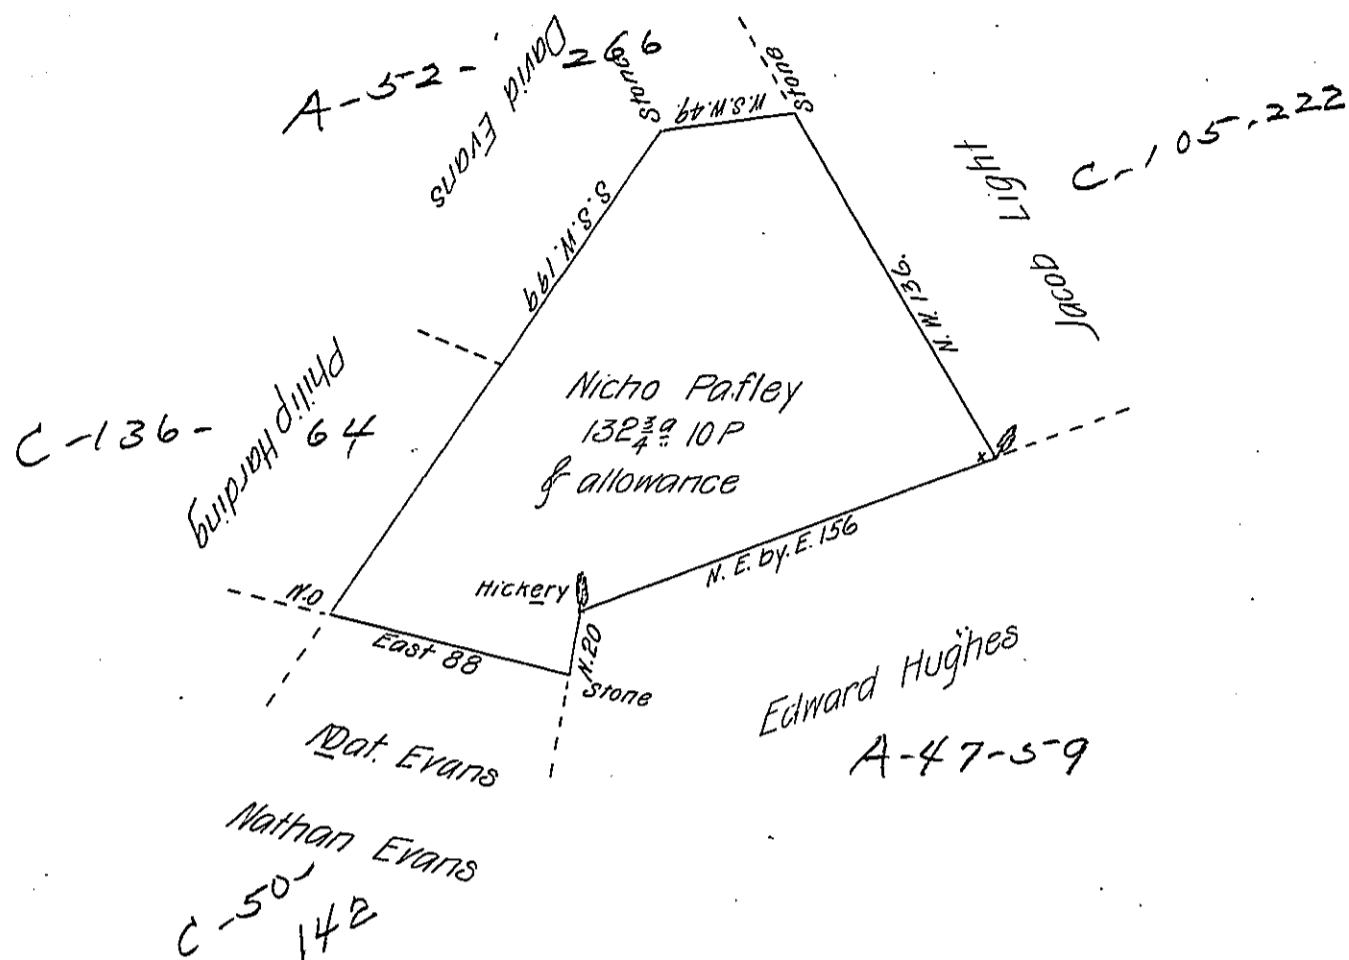 A-52-266
David Evans
Stone
W.S.W. 49.
Stone
C-105-222
Jacob Light
S.S.W. 199
N.W. 136.
Philip Harding
C-136-64
Nicho Pafley
132¾ a 10 P
& allowance
N.E. by. E. 156
Hickery
N.O
East 88
N.20
Stone
Edward Hughes
A-47-59
Nat. Evans
Nathan Evans
C-50-
142